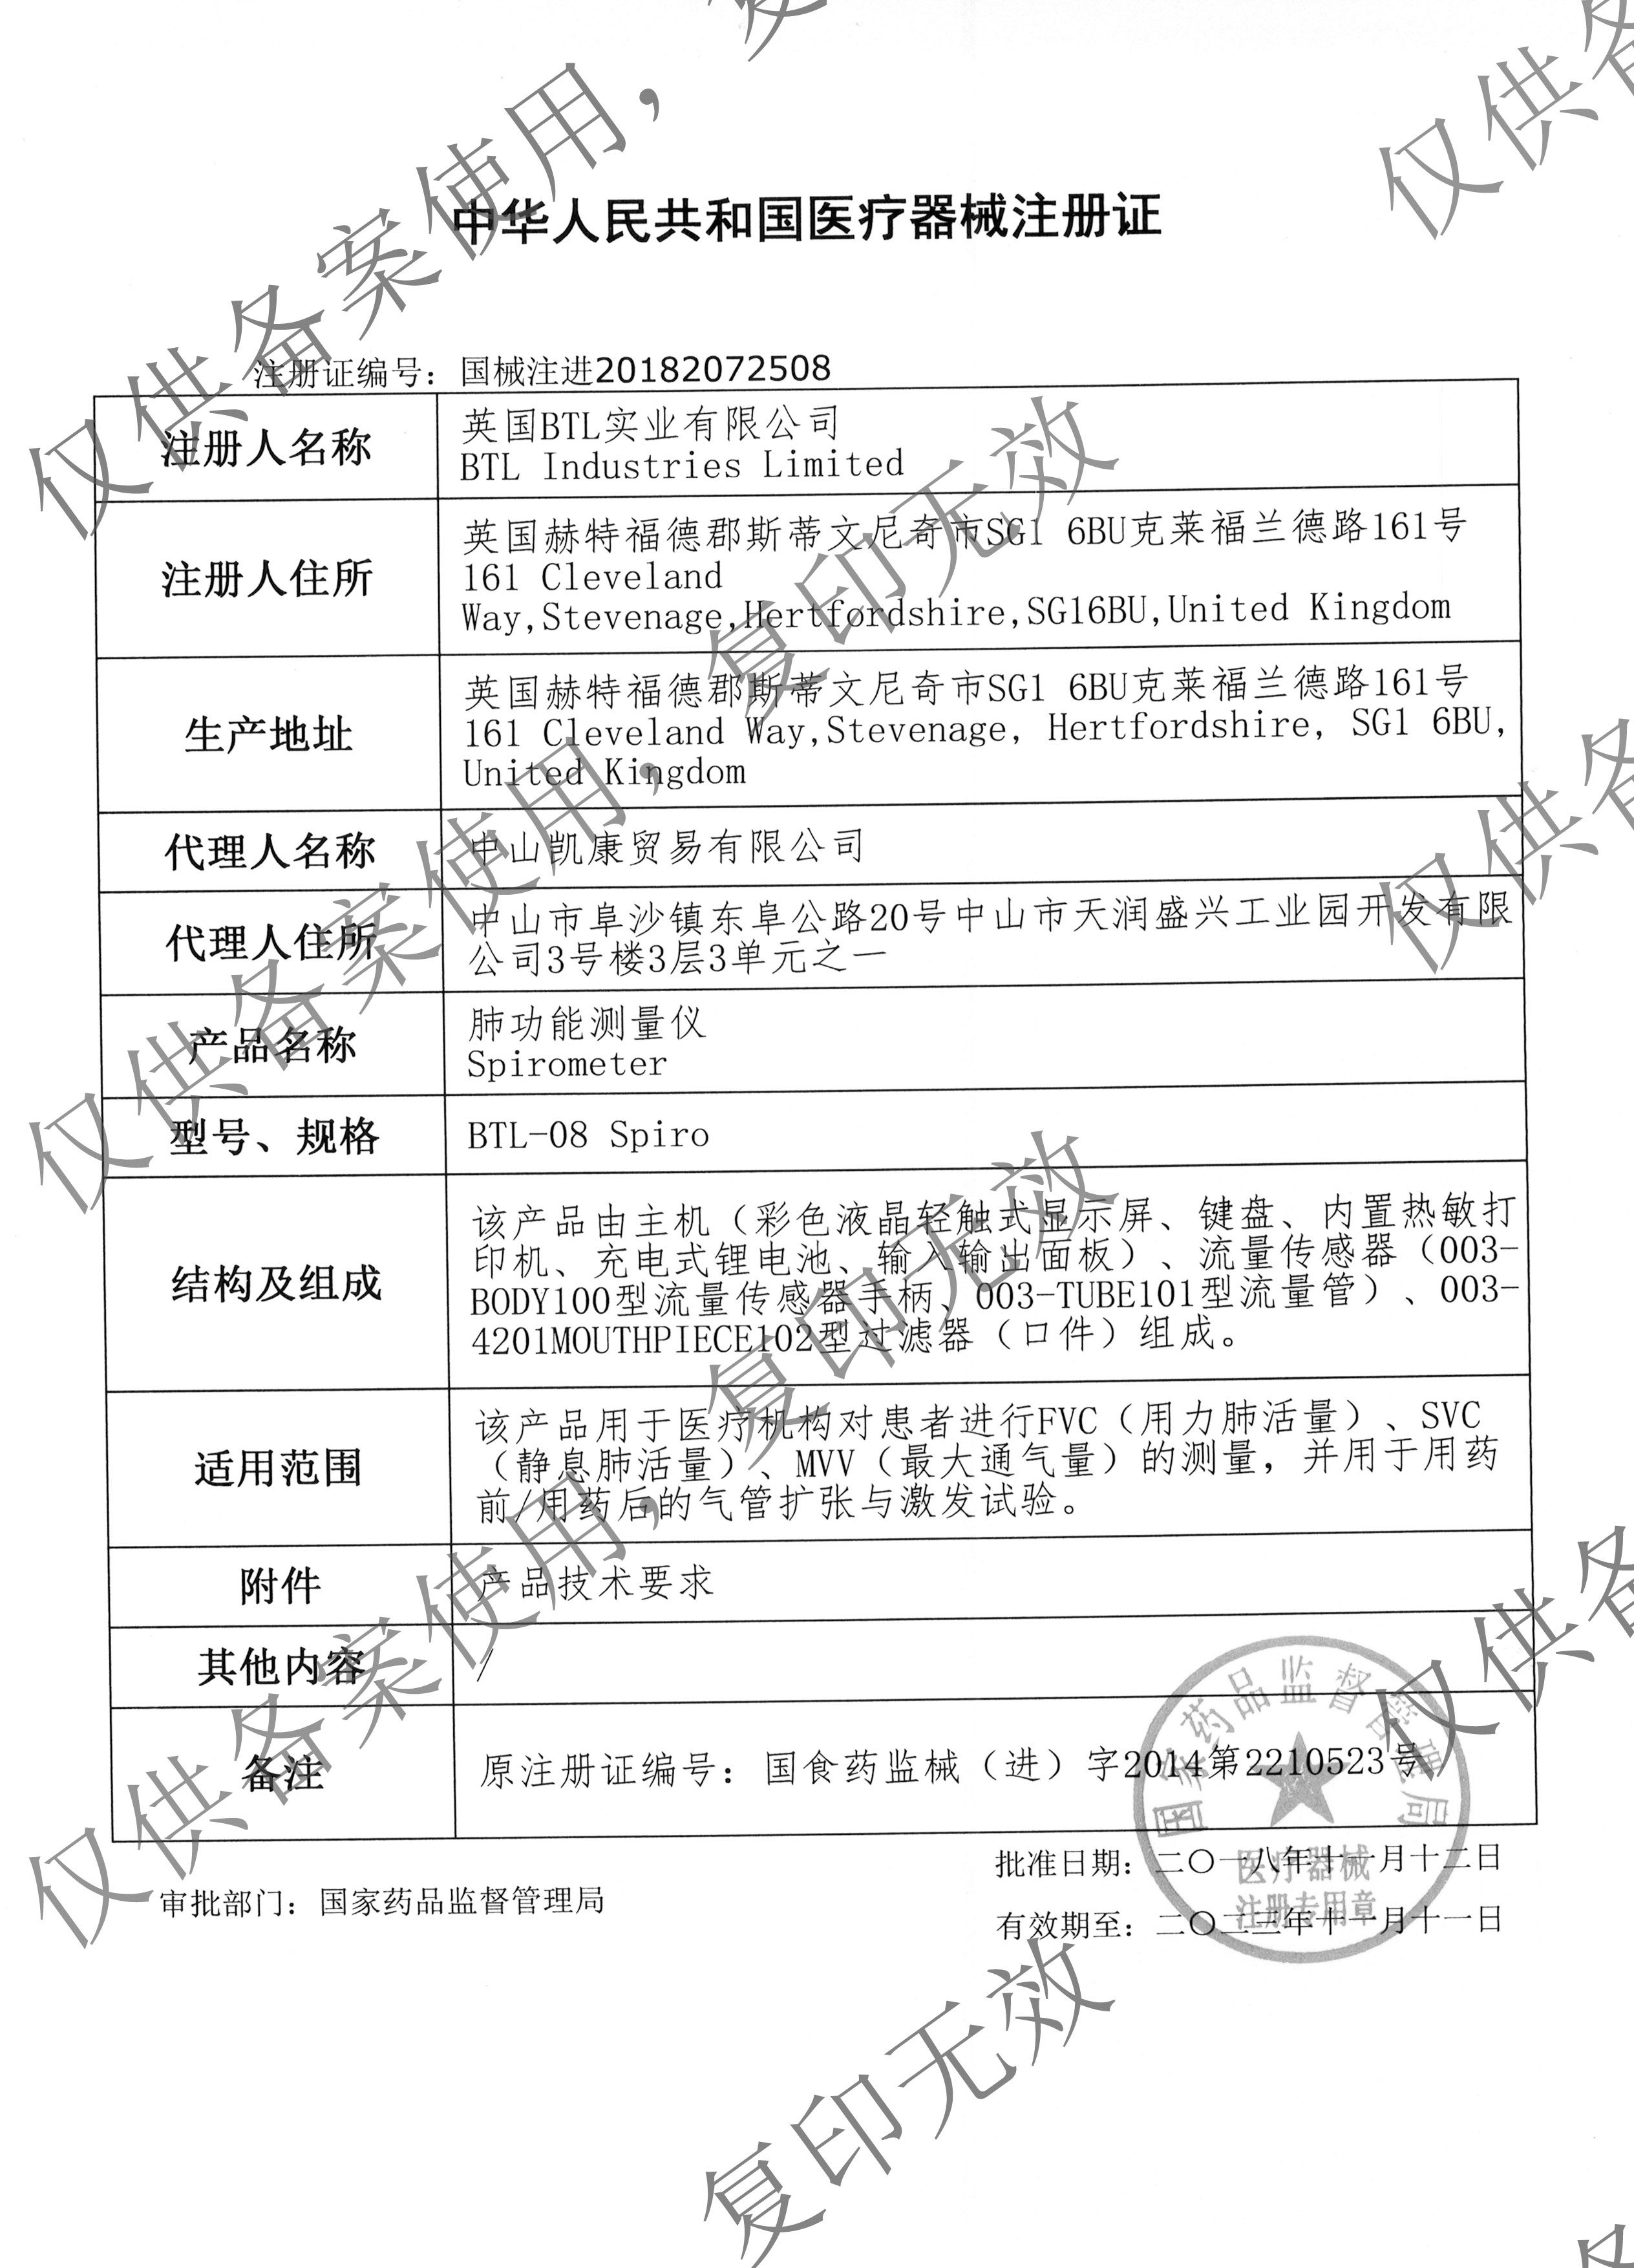 中华人民共和国医疗器械注册证
注册证编号：国械注进20182072508
注册人名称
英国BTL实业有限公司
BTL Industries Limited
注册人住所
英国赫特福德郡斯蒂文尼奇市SG1 6BU克莱福兰德路161号
161 Cleveland
Way,Stevenage,Hertfordshire,SG16BU,United Kingdom
生产地址
英国赫特福德郡斯蒂文尼奇市SG1 6BU克莱福兰德路161号
161 Cleveland Way,Stevenage, Hertfordshire, SG1 6BU,
United Kingdom
代理人名称
中山凯康贸易有限公司
代理人住所
中山市阜沙镇东阜公路20号中山市天润盛兴工业园开发有限
公司3号楼3层3单元之一
产品名称
肺功能测量仪
Spirometer
型号、规格
BTL-08 Spiro
结构及组成
该产品由主机（彩色液晶轻触式显示屏、键盘、内置热敏打
印机、充电式锂电池、输入输出面板）、流量传感器（003-
BODY100型流量传感器手柄、003-TUBE101型流量管）、003-
4201MOUTHPIECE102型过滤器（口件）组成。
适用范围
该产品用于医疗机构对患者进行FVC（用力肺活量）、SVC
（静息肺活量）、MVV（最大通气量）的测量，并用于用药
前/用药后的气管扩张与激发试验。
附件
产品技术要求
其他内容
/
备注
原注册证编号：国食药监械（进）字2014第2210523号
审批部门：国家药品监督管理局
批准日期：二〇一八年十一月十二日
有效期至：二〇二三年十一月十一日
国家药品监督管理局
医疗器械
注册专用章
仅供备案使用，复印无效